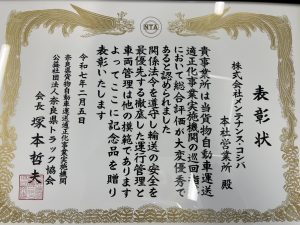 NTA
表彰状
株式会社メンテナンス・コシバ
本社営業所 殿
貴事業所は当貨物自動車運送
適正化事業実施機関の巡回指導
において総合評価が大変優秀で
あると認められます
関係法令を遵守し輸送の安全を
最優先とする徹底した運行管理と
車両管理は他の模範であります
よってここに記念品を贈り
表彰いたします
令和七年二月五日
奈良県貨物自動車運送適正化事業実施機関
公益社団法人奈良県トラック協会
会長 塚本哲夫